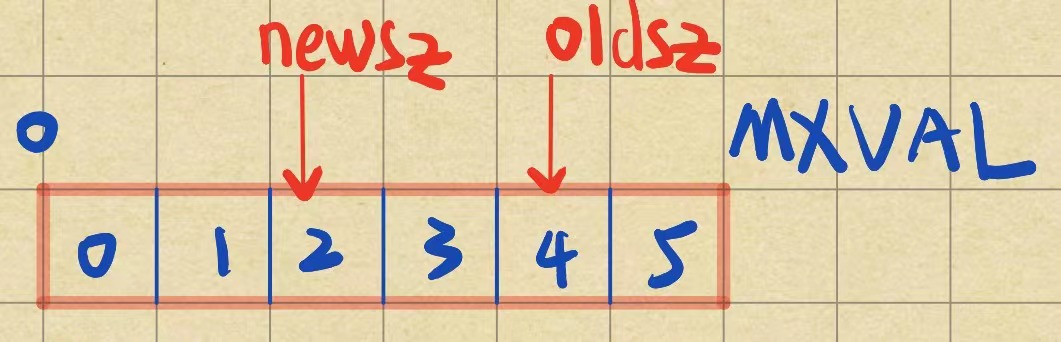 newsz oldsz
0 MXVAL
0 1 2 3 4 5